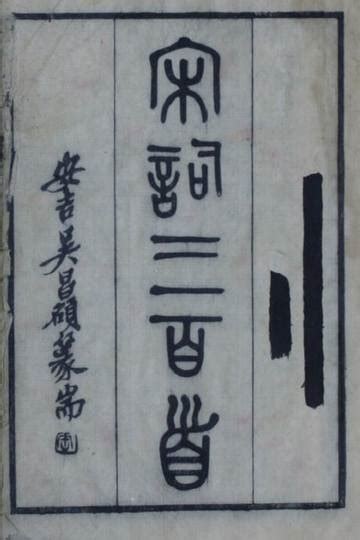 宋詞三百首
安吉吳昌碩篆耑